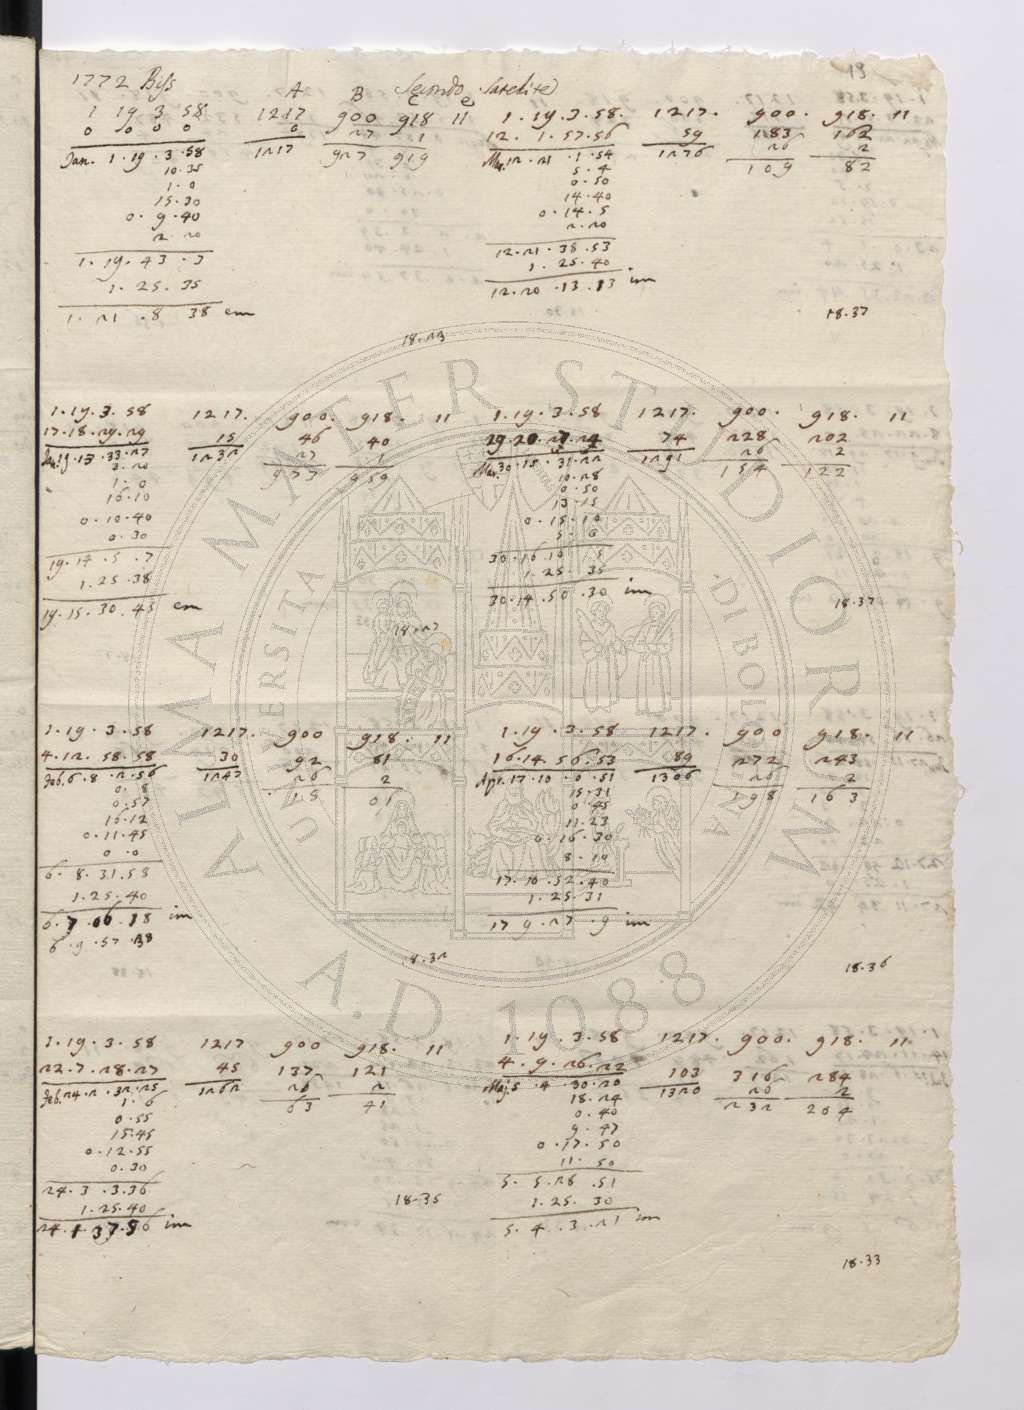 19
1772 Biss A B Secondo Satelite
1 19 3 58 1217 900 918 11
0 0 0 0 0 27 1
Jan. 1.19.3.58 1217 927 919
10.35
1.0
15.30
0.9.40
2.20
1.19.43.3
1.25.35
1.21.8 38 em
18.23
1.19.3.58. 1217. 900. 918. 11
12.1.57.56 59 183 162
Mar.12.21.1.54 1276 26 2
5.4 109 82
0.50
14.40
0.14.5
2.20
12.21.38.53
1.25.40
12.20.13.13 im
18.37
1.19.3.58 1217. 900. 918. 11
17.18.29.29 15 46 40
Jan.19.13.33.27 1232 27 1
2.20 973 959
1.0
16.10
0.10.40
0.30
19.14.5.7
1.25.38
19.15.30.45 em
18.27
1.19.3.58 1217. 900. 918. 11
29.20.27.24 74 228 202
Mar.30.15.31.22 1291 26 2
10.28 154 122
0.50
13.15
0.15.10
5.0
30.16.16.5
1.25.35
30.14.50.30 im
18.37
1.19.3.58 1217. 900 918. 11
4.12.58.58 30 92 81
Feb.6.8.2.56 1247 26 2
0.8 18 01
0.57
16.12
0.11.45
0.0
6.8.31.58
1.25.40
6.7.06.18 im
6.9.57.38
18.32
1.19.3.58 1217. 900 918. 11
16.14.56.53 89 272 243
Apr.17.10.0.51 1306 26 2
15.31 198 163
0.45
11.23
0.16.30
8.10
17.10.52.40
1.25.31
17 9.27.9 im
18.36
1.19.3.58 1217 900 918. 11
22.7.28.27 45 137 121
Feb.24.2.32.25 1262 26 2
1.6 63 41
0.55
15.45
0.12.55
0.30
24.3.3.36
1.25.40
24.1.37.56 im
18.35
1.19.3.58 1217. 900. 918. 11
4.9.26.22 103 316 284
Maj.5.4.30.20 1320 26 2
18.24 232 204
0.40
9.47
0.17.50
11.50
5.5.28.51
1.25.30
5.4.3.21 im
18.33
ALMA MATER STUDIORUM
UNIVERSITA DI BOLOGNA
A.D. 1088